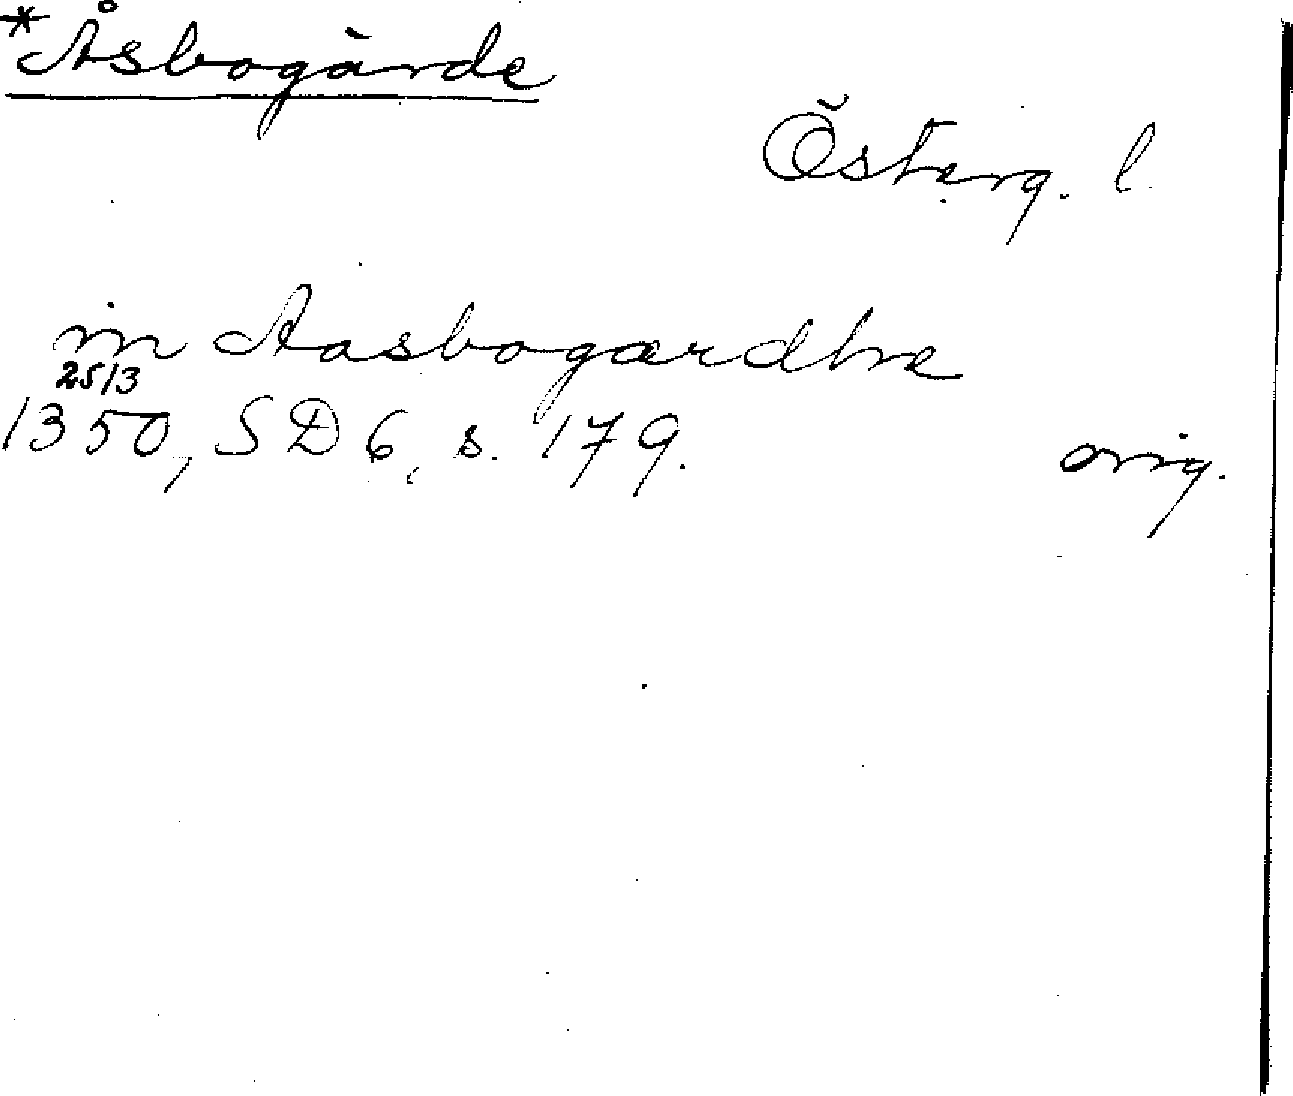 *Åsbogärde
Österg. l.
in Aasbogærdhe
25/3
1350, SD 6, s. 179. orig.